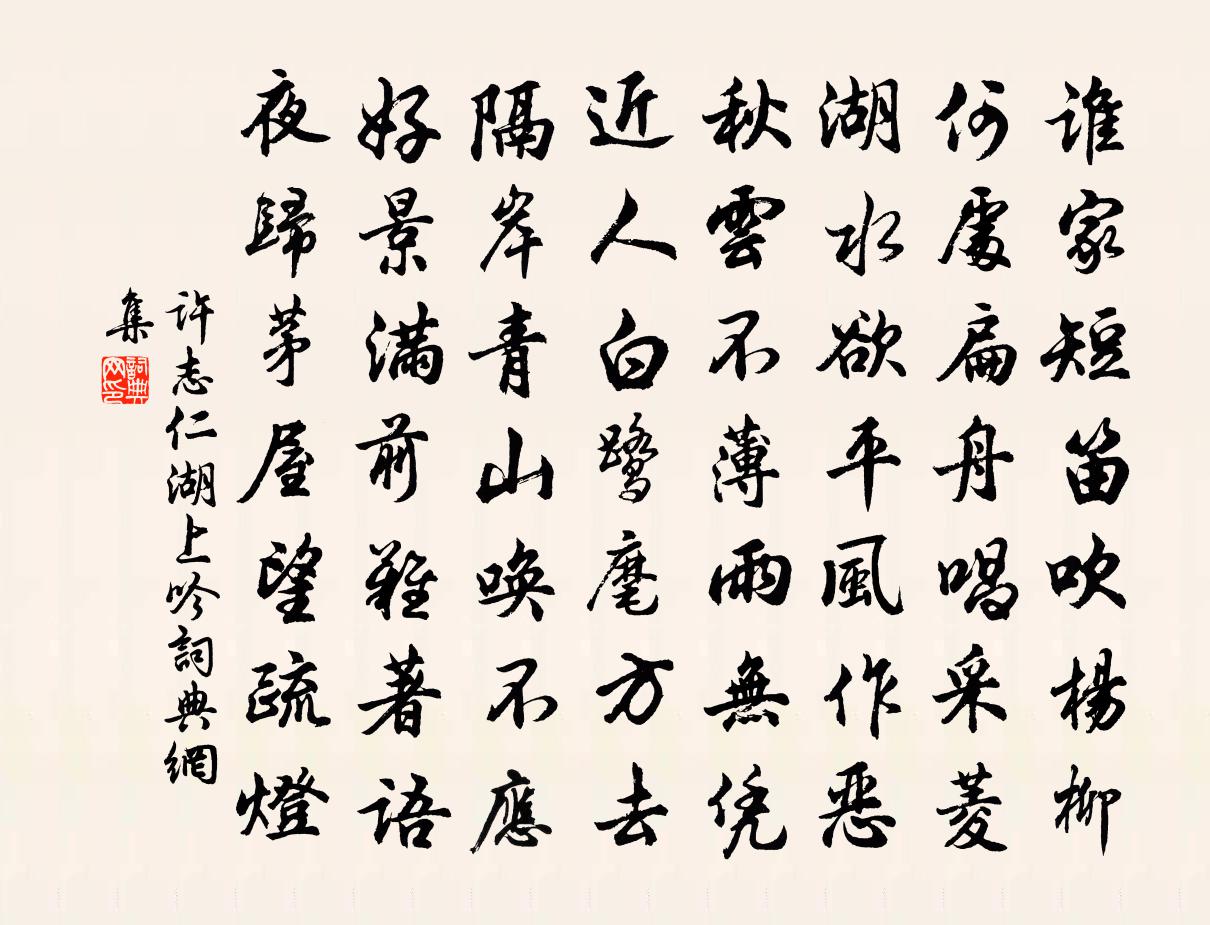 谁家短笛吹楊柳
何處扁舟唱采菱
湖水欲平風作恶
秋雲不薄雨無凭
近人白鹭麾方去
隔岸青山唤不應
好景满前難著語
夜歸茅屋望疏燈
许志仁湖上吟詞典網
集
詞典网印